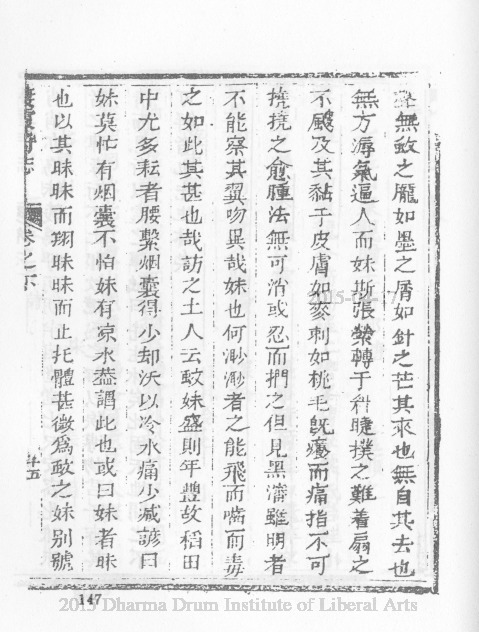 無蚊之龐如墨之屑如針之芒其來也無自其去也
無方溽氣逼人而妹斯張縈轉于科睫撲之難着扇之
不颺及其黏于皮膚如麥刺如桃毛旣癢而痛指不可
撓撓之愈腫法無可治或忍而捫之但見黑瀋雖明者
不能察其翼吻異哉妹也何渺渺者之能飛而嚙而毒
之如此其甚也哉訪之土人云蚊妹盛則年豐故稻田
中尤多耘者腰繫烟囊得少却沃以冷水痛少减諺曰
妹莫忙有烟囊不怕妹有凉水葢謂此也或曰妹者昧
也以其昧昧而翔昧昧而止托體甚微爲蚊之妹別號
志
卷之下
十五
147
2015 Dharma Drum Institute of Liberal Arts